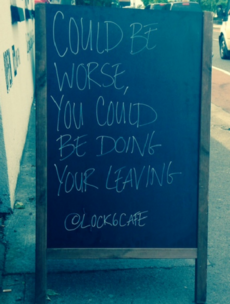 COULD BE
WORSE,
YOU COULD
BE DOING
YOUR LEAVING
@LOCK6CAFE